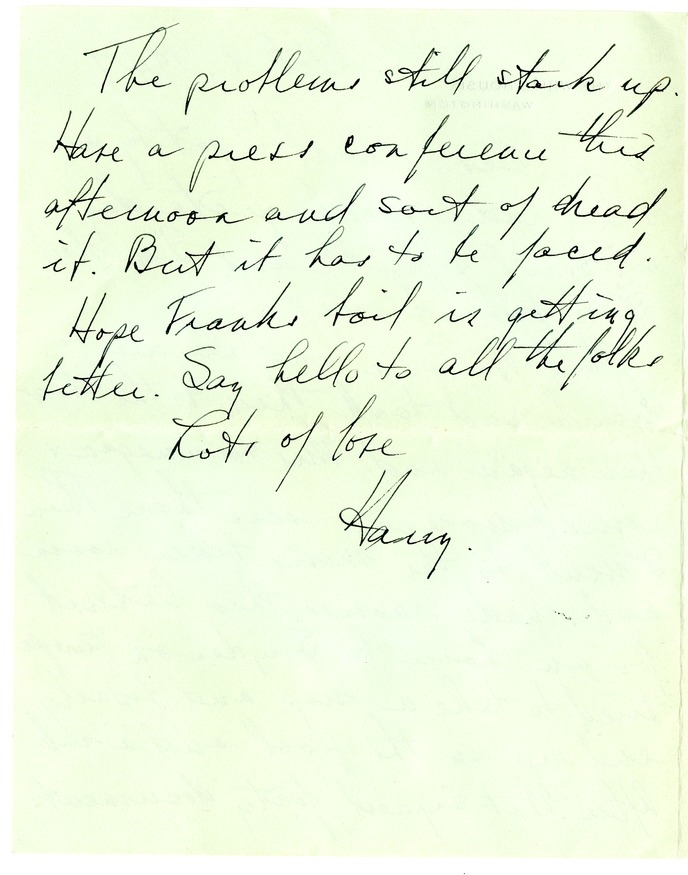 The problems still stack up.
Have a press conference this
afternoon and sort of dread
it. But it has to be faced.
Hope Franks boil is getting
better. Say hello to all the folks
Lots of love
Harry.